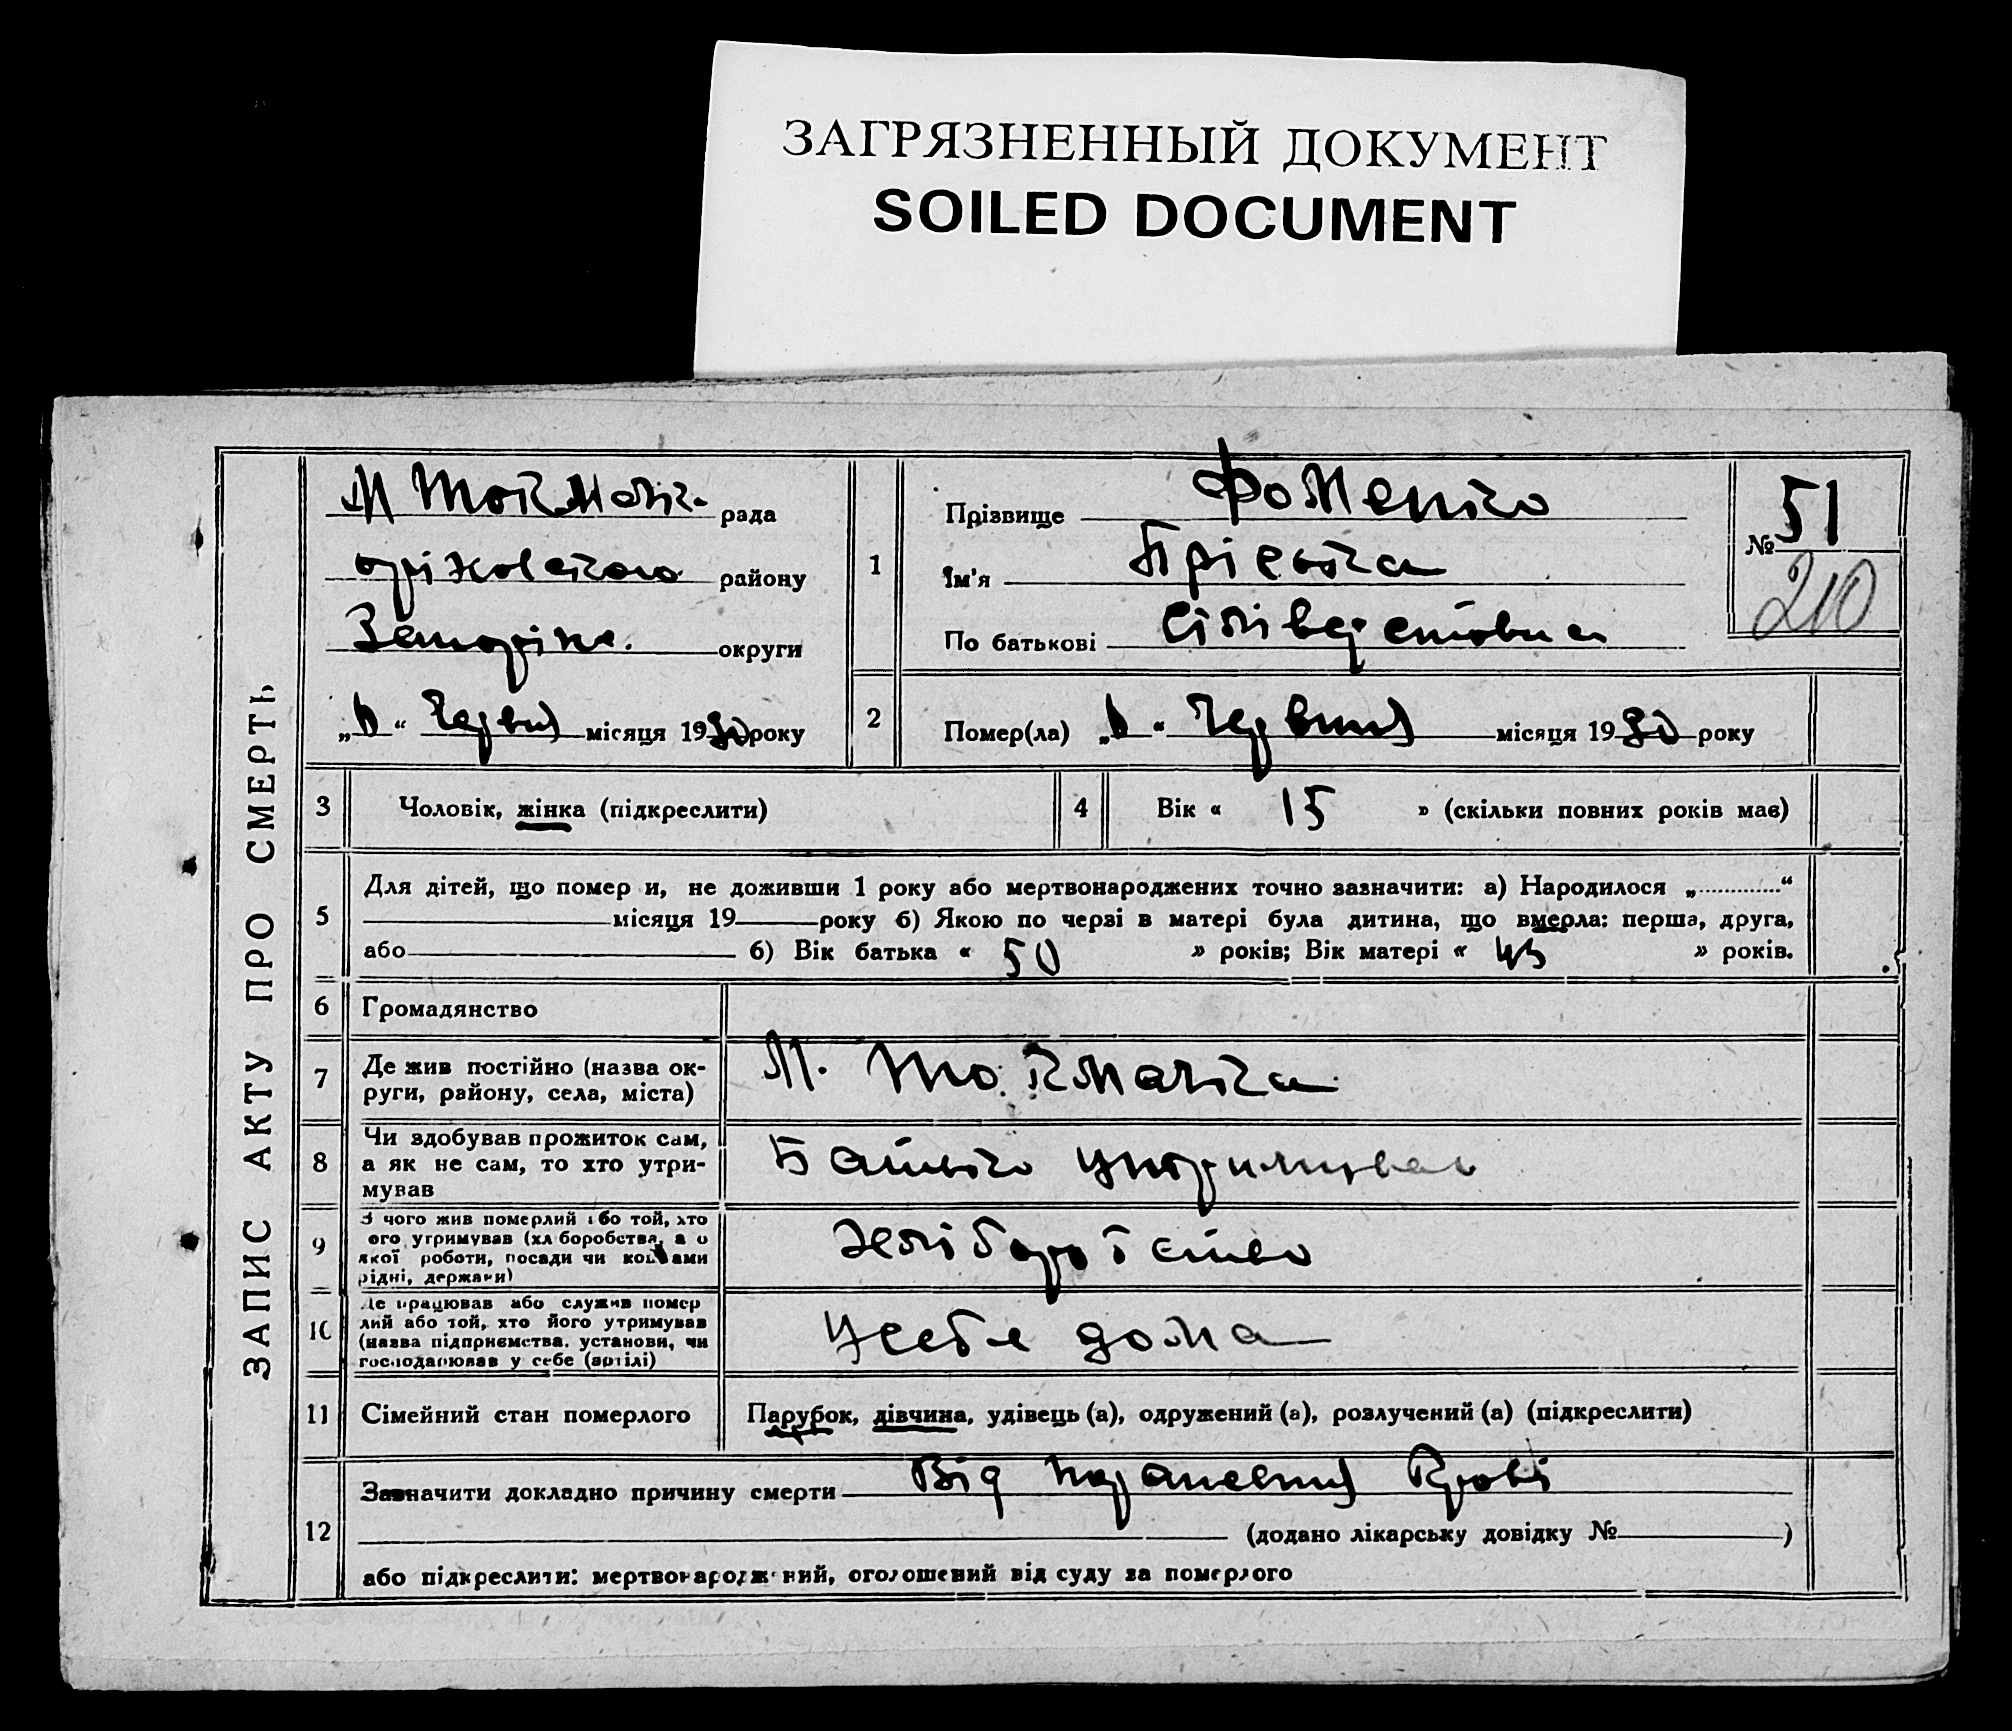 ЗАГРЯЗНЕННЫЙ ДОКУМЕНТ
SOILED DOCUMENT
ЗАПИС АКТУ ПРО СМЕРТЬ
М Токмачк. рада
оріховського району
Запоріж. округи
" " червня місяця 1930 року
1
Прізвище Фоменко
Ім'я Пріська
По батькові Сіліверстовна
№ 51
210
2 Помер(ла) " " червня місяця 1930 року
3 Чоловік, жінка (підкреслити)
4 Вік « 15 » (скільки повних років має)
5 Для дітей, що помер и, не доживши 1 року або мертвонароджених точно зазначити: а) Народилося „ “
місяця 19 року б) Якою по черзі в матері була дитина, що вмерла: перша, друга,
або б) Вік батька « 50 » років; Вік матері « 45 » років.
6 Громадянство
7 Де жив постійно (назва ок-
руги, району, села, міста)
М. Токмачка
8 Чи здобував прожиток сам,
а як не сам, то хто утри-
мував
Батько утримував
9 З чого жив померлий або той, хто
ого утримував (хл боробства, а о
якої роботи, посади чи коштами
рідні, держави)
Хліборобство
10 Де працював або служив помер
лий або той, хто його утримував
(назва підприємства, установи, чи
господарював у себе (артілі)
У себе дома
11 Сімейний стан померлого
Парубок, дівчина, удівець (а), одружений (а), розлучений (а) (підкреслити)
12 Зазначити докладно причину смерти Від крові
(додано лікарську довідку № )
або підкреслити: мертвонароджений, оголошений від суду за померлого